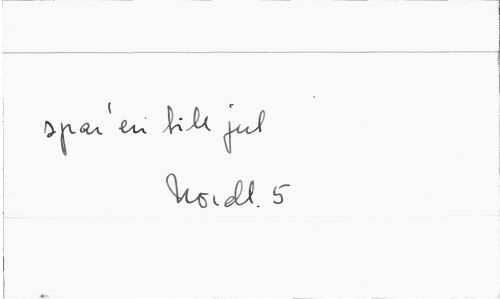 spar'en till jul
Nordl. 5